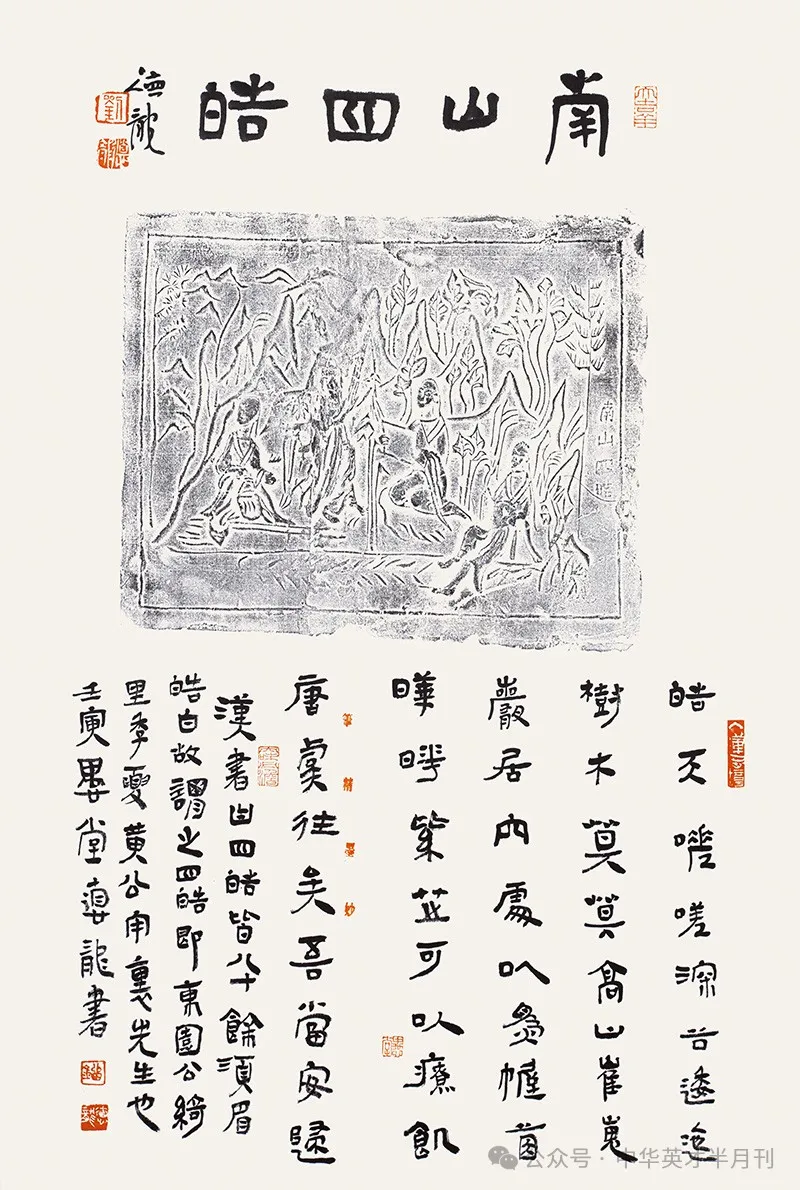 南山四皓
德龍
南山四皓
皓天嗟嗟深谷逶迤
樹木莫莫高山崔嵬
巖居穴處以為幄茵
曄曄紫芝可以療飢
唐虞往矣吾當安歸
筆精墨妙
漢書曰四皓皆八十餘須眉
皓白故謂之四皓即東園公綺
里季夏黄公甪裏先生也
壬寅墨堂德龍書
公众号·中华英才半月刊